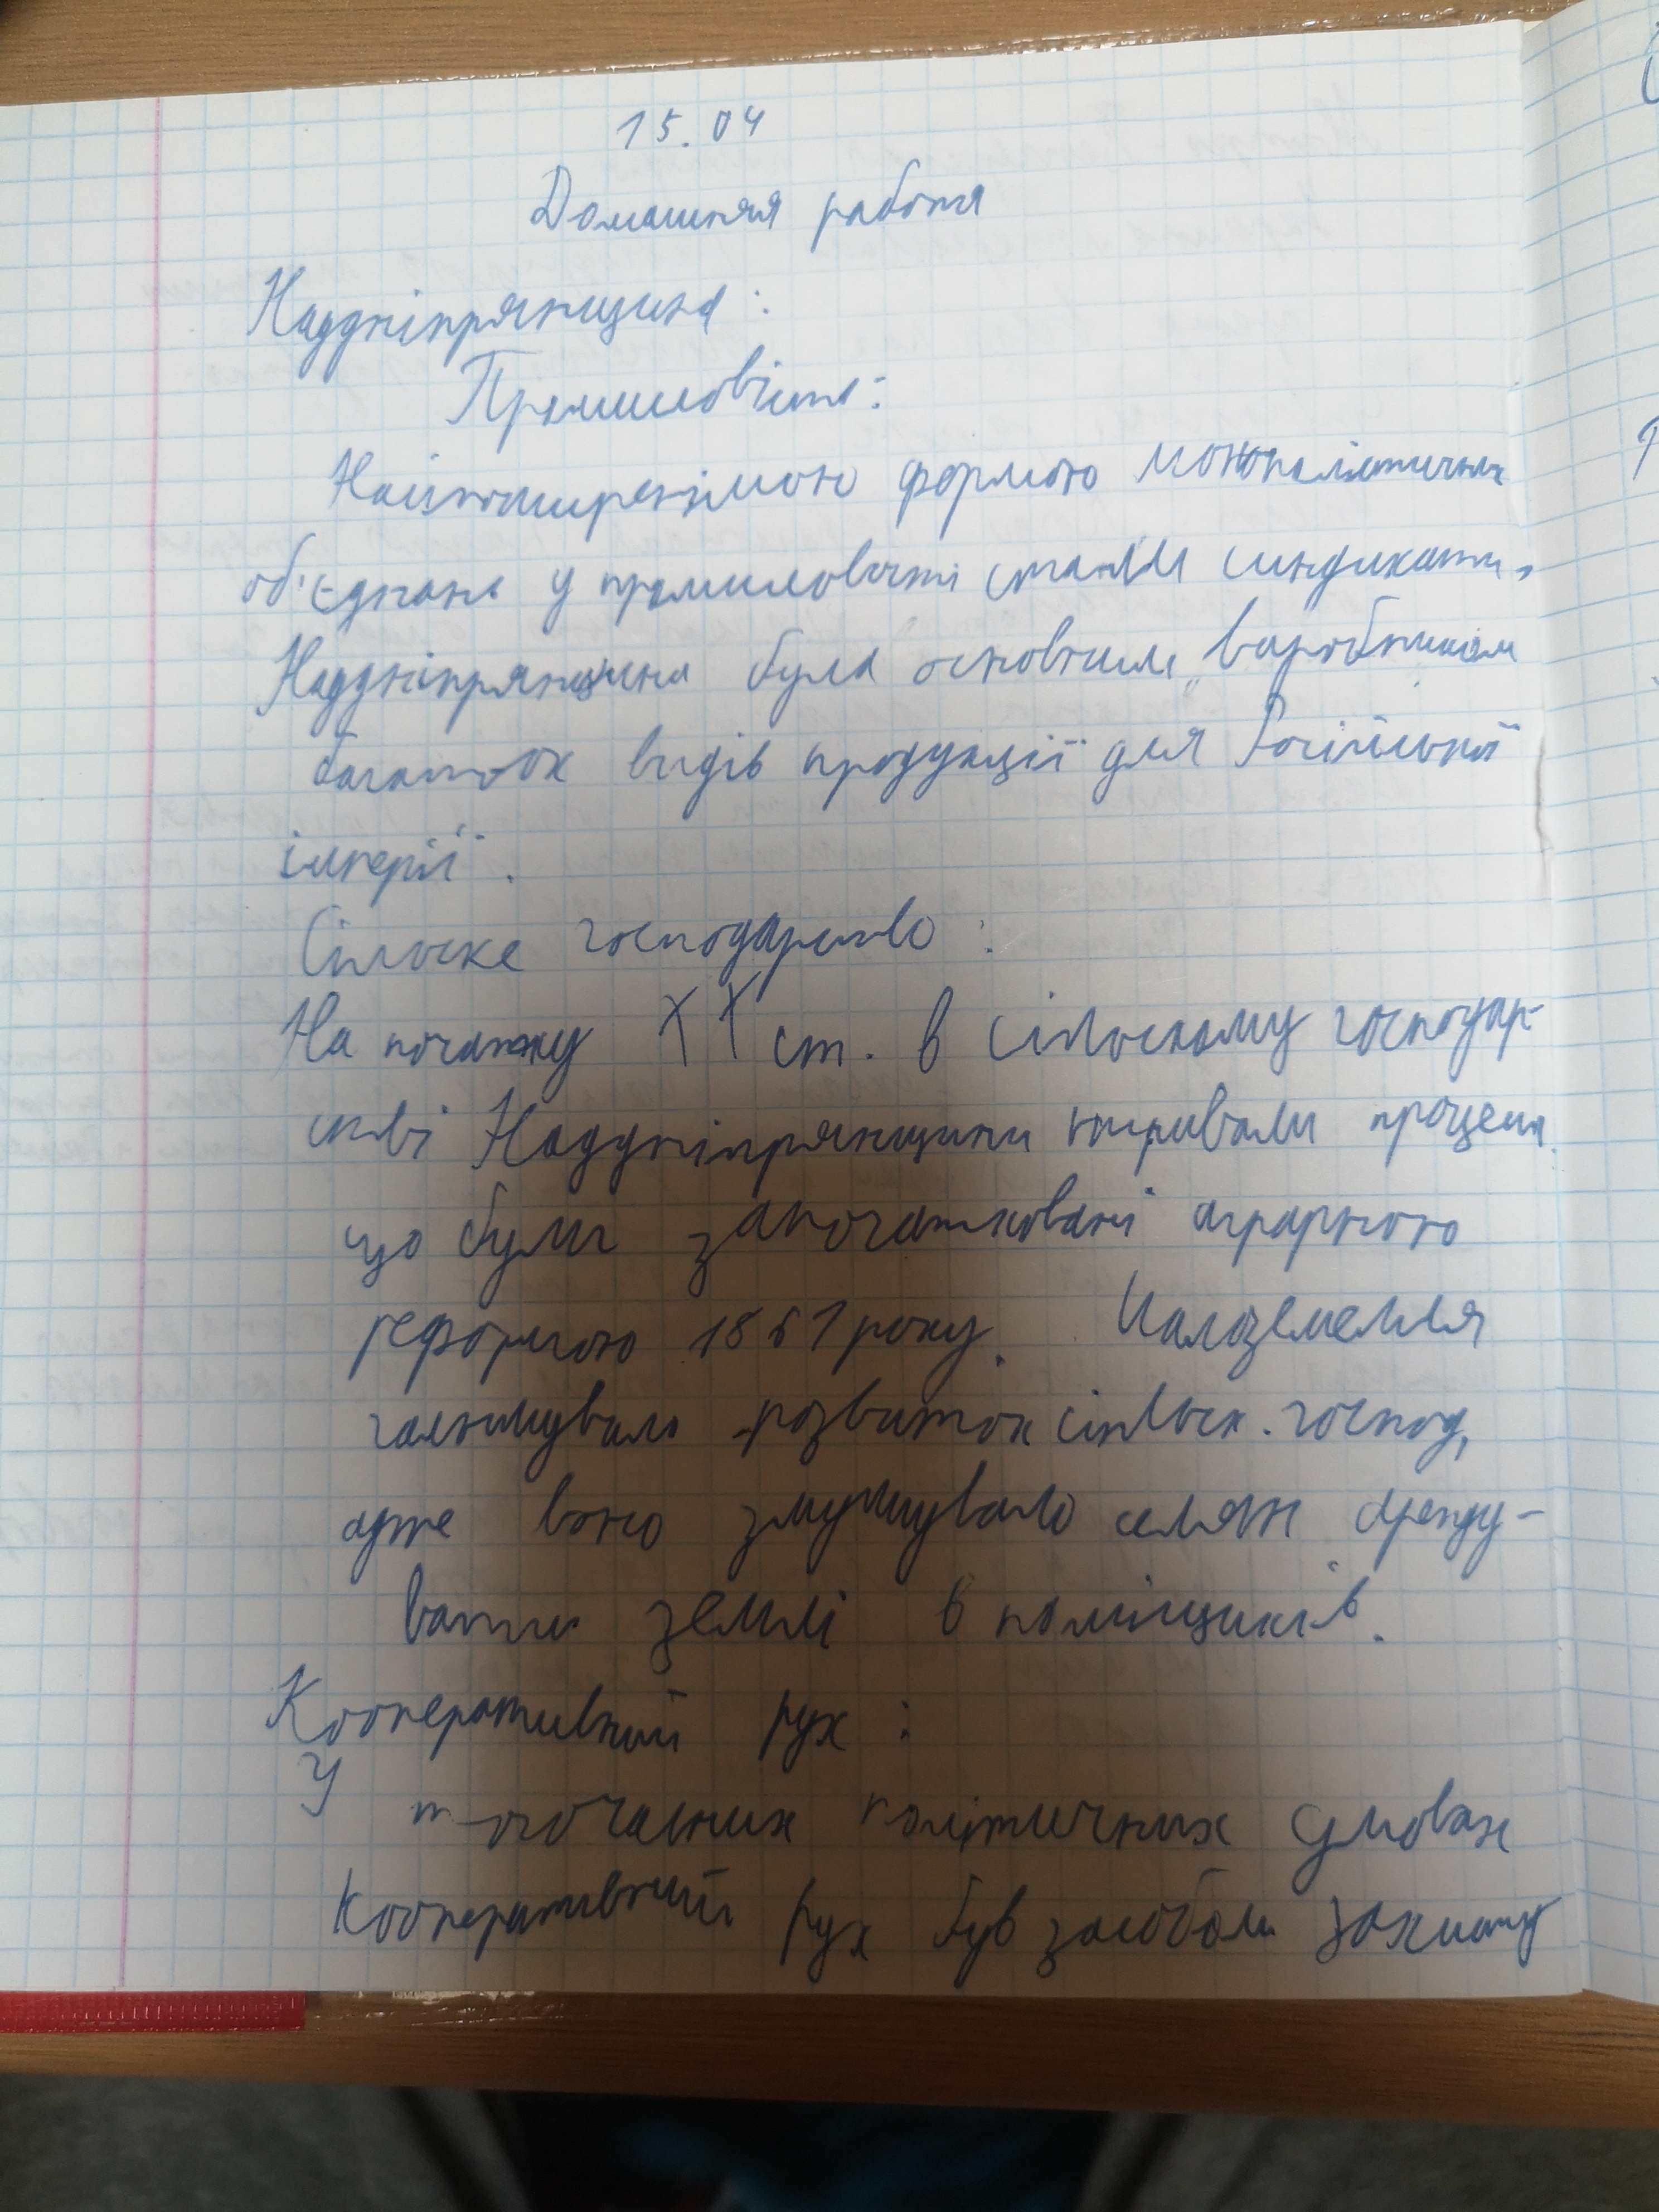 15.04
Домашняя работа
Наддніпрянщина:
Промисловість:
Найпоширенішою формою монополістичних
об'єднань у промисловості стали синдикати.
Наддніпрянщина була основним виробником
багатьох видів продукції для Російської
імперії.
Сільске господарство:
На початку XX ст. в сільскому господар-
стві Наддніпрянщини тривали процеси
що були започатковані аграрною
реформою 1861 року. Малоземелля
гальмувало розвиток сільск. господ,
адже воно змушувало селян оренду-
вати землі в поміщиків.
Кооперативний рух:
У тогочасних політичних умовах
Кооперативний рух був засобом захисту